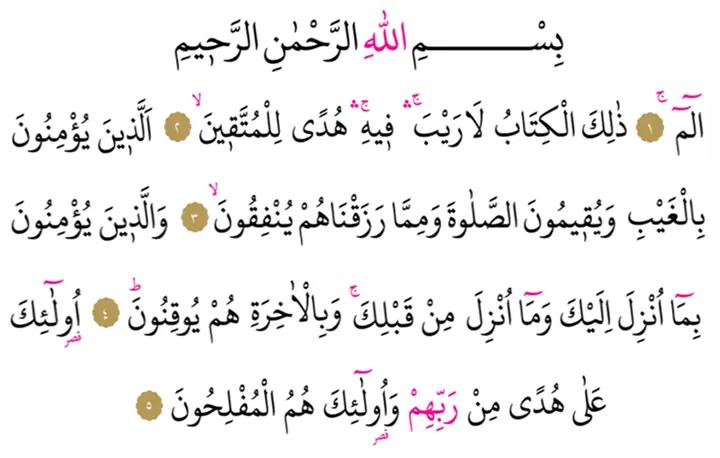 بِسْــــــــــــمِ اللّٰهِ الرَّحْمٰنِ الرَّح۪يمِ
الٓمٓۚ ﴿١﴾ ذٰلِكَ الْكِتَابُ لَا رَيْبَۚۛ ف۪يهِۚۛ هُدًى لِلْمُتَّق۪ينَۙ ﴿٢﴾ اَلَّذ۪ينَ يُؤْمِنُونَ
بِالْغَيْبِ وَيُق۪يمُونَ الصَّلٰوةَ وَمِمَّا رَزَقْنَاهُمْ يُنْفِقُونَۙ ﴿٣﴾ وَالَّذ۪ينَ يُؤْمِنُونَ
بِمَٓا اُنْزِلَ اِلَيْكَ وَمَٓا اُنْزِلَ مِنْ قَبْلِكَۚ وَبِالْاٰخِرَةِ هُمْ يُوقِنُونَۜ ﴿٤﴾ اُو۬لٰٓئِكَ قصر
عَلٰى هُدًى مِنْ رَبِّهِمْ وَاُو۬لٰٓئِكَ قصر هُمُ الْمُفْلِحُونَ ﴿٥﴾